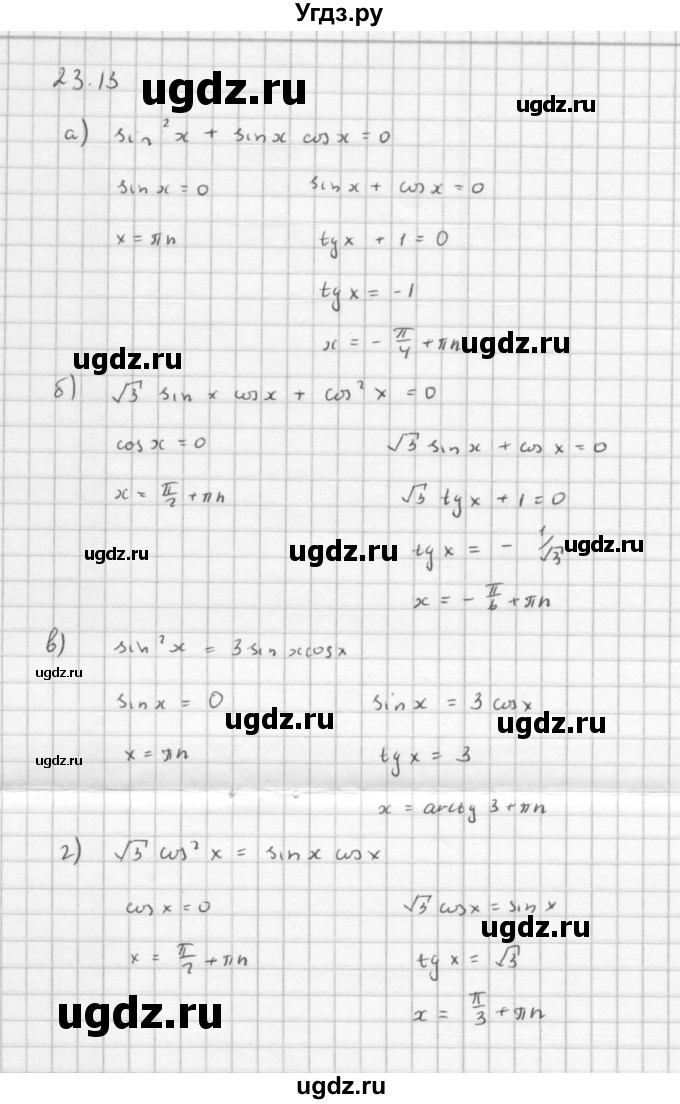 Угдз.ру
23.13 ugdz.ru ugdz.ru
а) sin²x + sinx cosx = 0
sinx = 0 sinx + cosx = 0
x = πn tgx + 1 = 0
tgx = -1
ugdz.ru x = - π/4 + πn ugdz.ru
б) √3 sinx cosx + cos²x = 0
cosx = 0 √3 sinx + cosx = 0
x = π/2 + πn √3 tgx + 1 = 0
ugdz.ru ugdz.ru tgx = - 1/√3 ugdz.ru
x = - π/6 + πn
в) sin²x = 3 sinxcosx
ugdz.ru
sinx = 0 ugdz.ru sinx = 3 cosx ugdz.ru
ugdz.ru x = πn tgx = 3
x = arctg 3 + πn
г) √3 cos²x = sinx cosx
cosx = 0 √3 cosx = sinx
ugdz.ru
x = π/2 + πn tgx = √3
ugdz.ru x = π/3 + πn
ugdz.ru